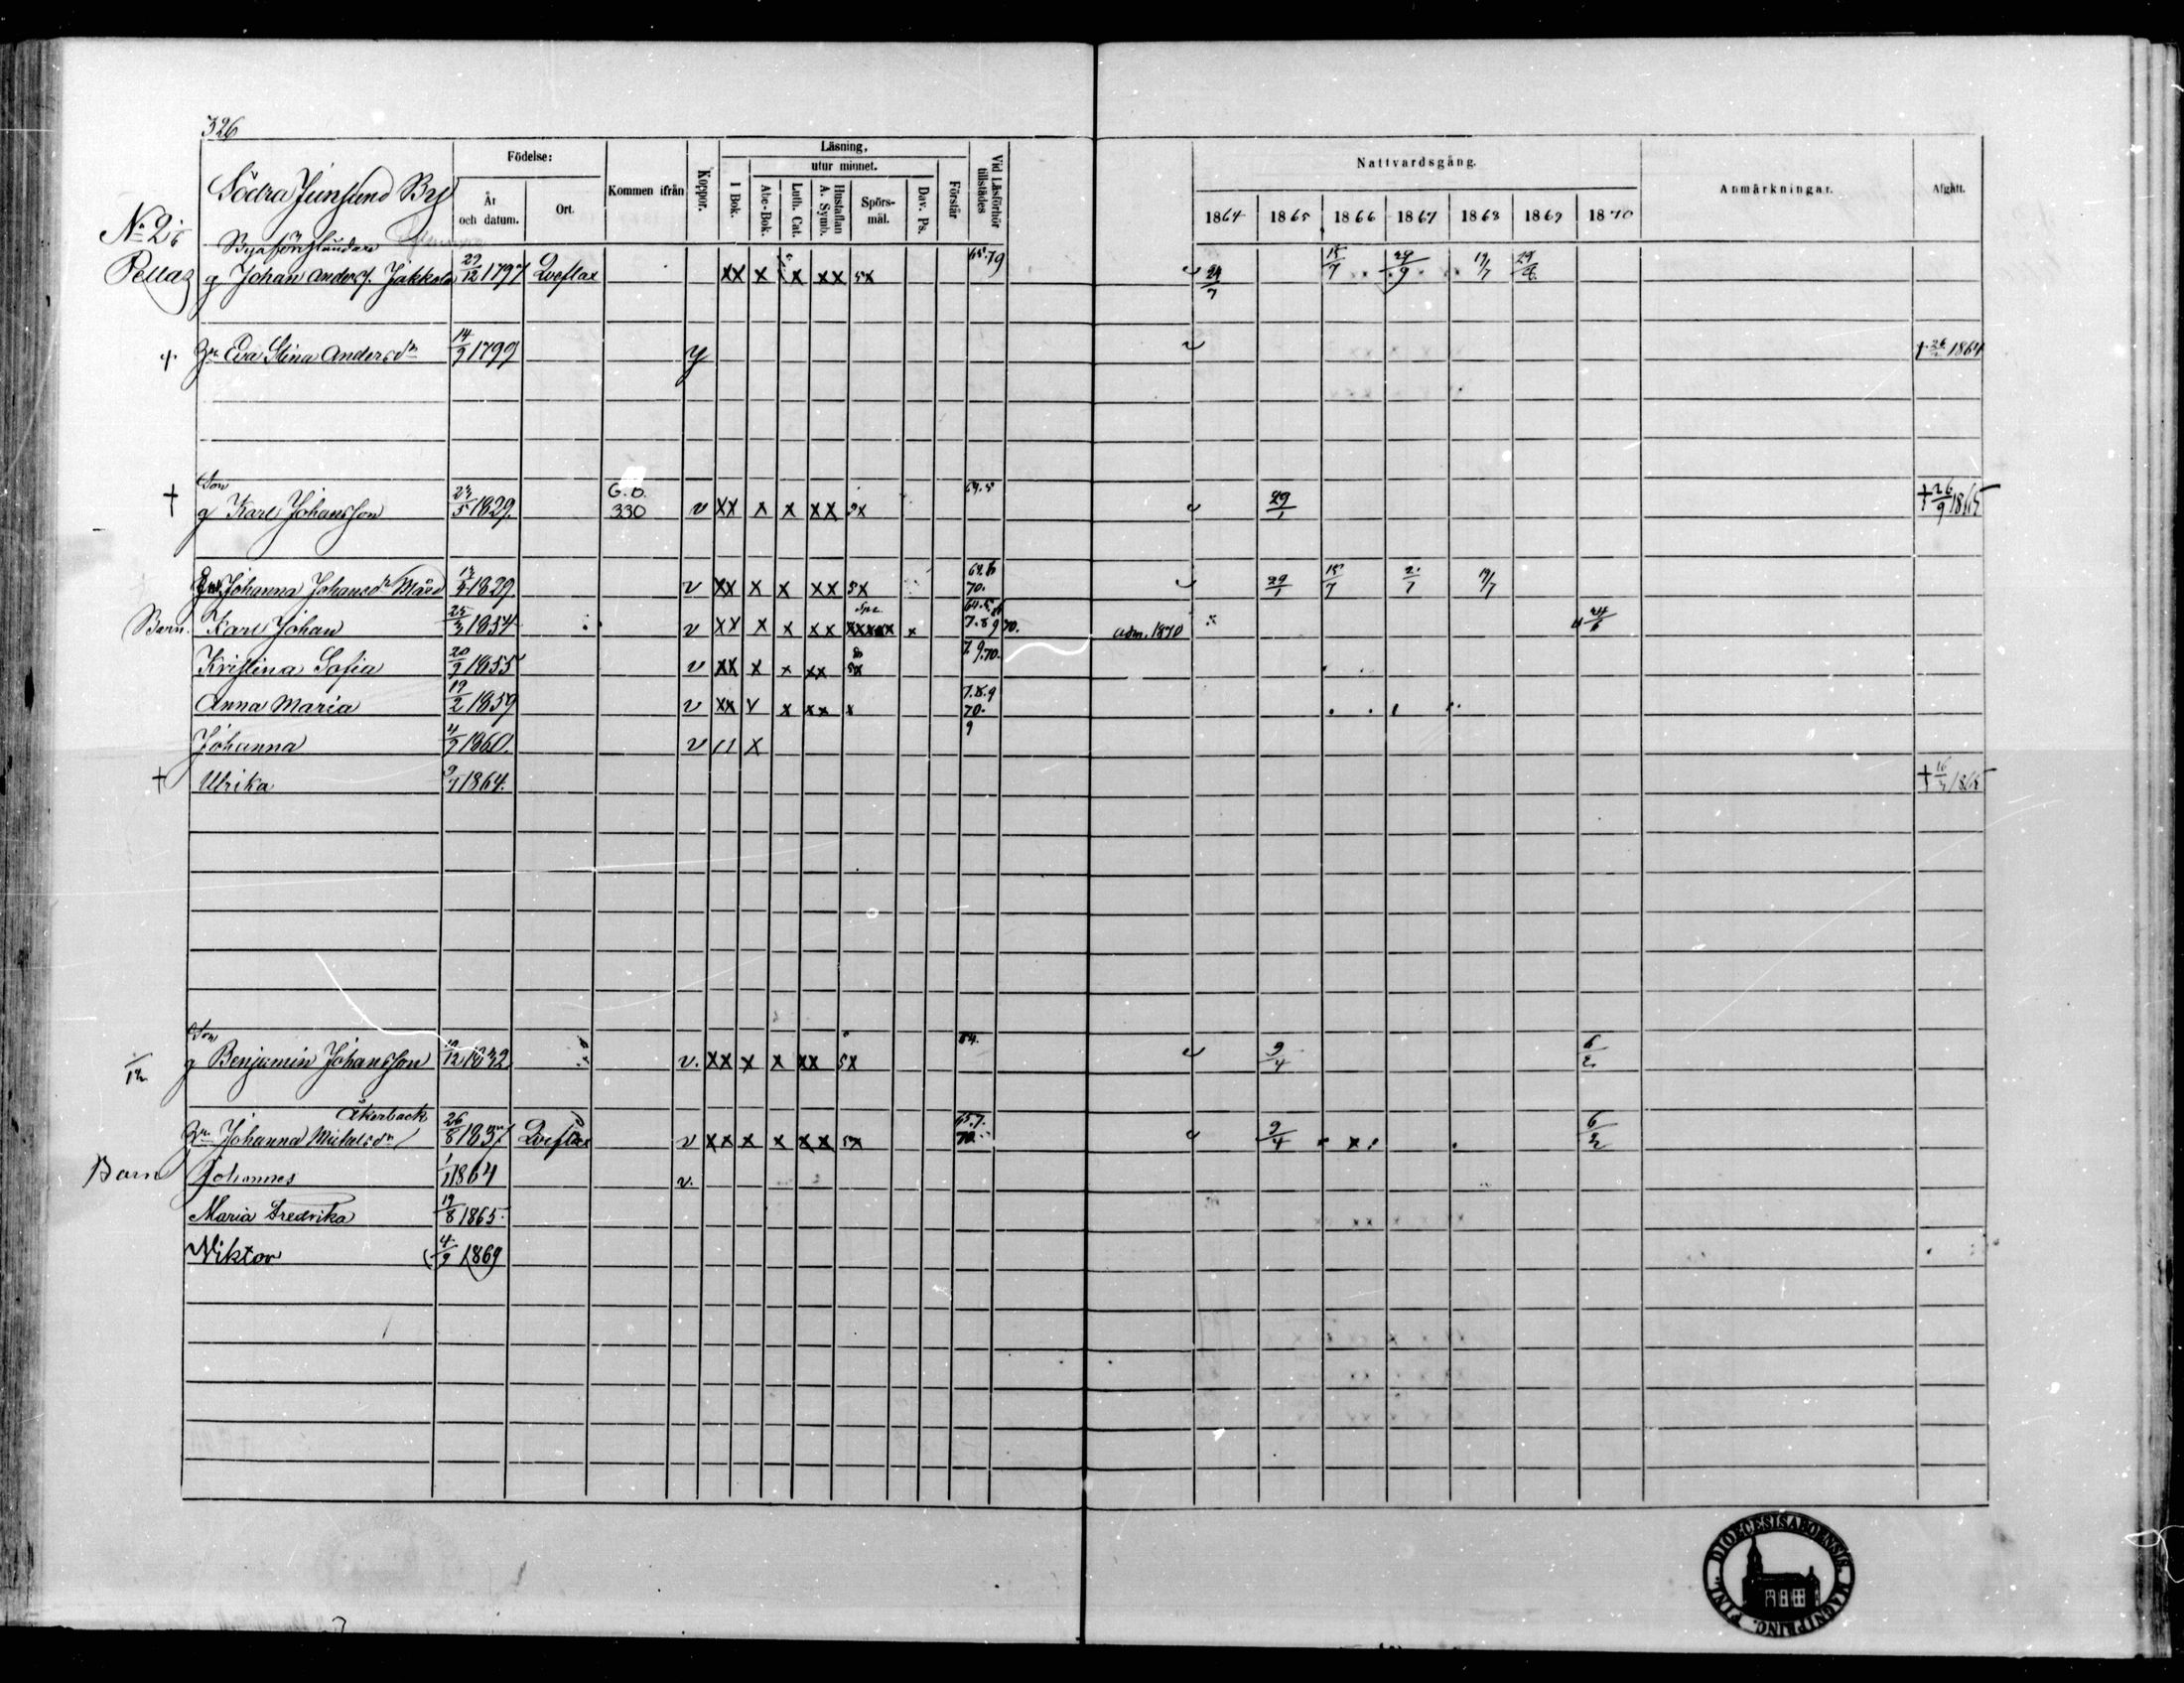 326
Läsning,
Födelse:
utur minnet.
Nattvardsgång.
Södra Jungsund By
Kommen ifrån
Koppor.
I Bok.
Abc-Bok.
Luth. Cat.
Hustaflan A. Symb.
Spörs-mål.
Dav. Ps.
Förstår
Vid Läsförhör tillstädes
Anmärkningar.
Afgått.
År och datum.
Ort.
1864 1865 1866 1867 1868 1869 1870
No 2
Pellas g Johan Anders. Jakkola 29/12 1797 Qveflax xx x x xx 5x 24/7 15/7 29/9 19/7
+ Eva Stina Andersdr 14/9 1799 y + 1864
Son G. B.
+ g Karl Johansson 24/5 1829. 330 v xx x x xx 5x 29/1 + 26/9 1865
Johanna Johansdr 1829. v xx x x xx 5x 70. 29/1 15/7 19/7
Barn. Karl Johan 25/3 1854 v xx x x xx xxxxx x 7.8.9 70. adm. 1870 24/6
Kristina Sofia 20/9 1855 v xx x x xx 5x 7.9.70.
Anna Maria 19/2 1859 v xx x x xx x 7.8.9 70.
Johanna 1860. v 11 x 9
+ Ulrika 1864. + 16/3 1865
Son
g Benjamin Johansson 12 1832 v. xx x x xx 5x 64. 9/4 6/2
Åkerback
Johanna Mickelsdr 26/8 1837 Qveflax v xx x x xx 5x 65.7. 70. 9/4 6/2
Barn Johannes 1/1 1864 v.
Maria Fredrika 19/8 1865
Wiktor 4/9 1869
DIOECESIS ABOENSIS MAGNI PRINC. FINL.